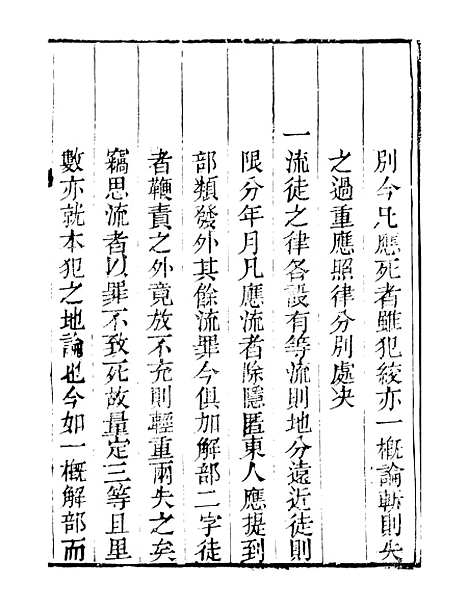 別今凡應死者雖犯絞亦一槪論斬則失
之過重應照律分别處决
一流徒之律各設有等流則地分遠近徒則
限分年月凡應流者除隱匿東人應提到
部類發外其餘流罪今俱加解部二字徒
者鞭責之外竟放不充則輕重兩失之矣
竊思流者以罪不致死故量定三等且里
數亦就本犯之地論也今如一槪解部而